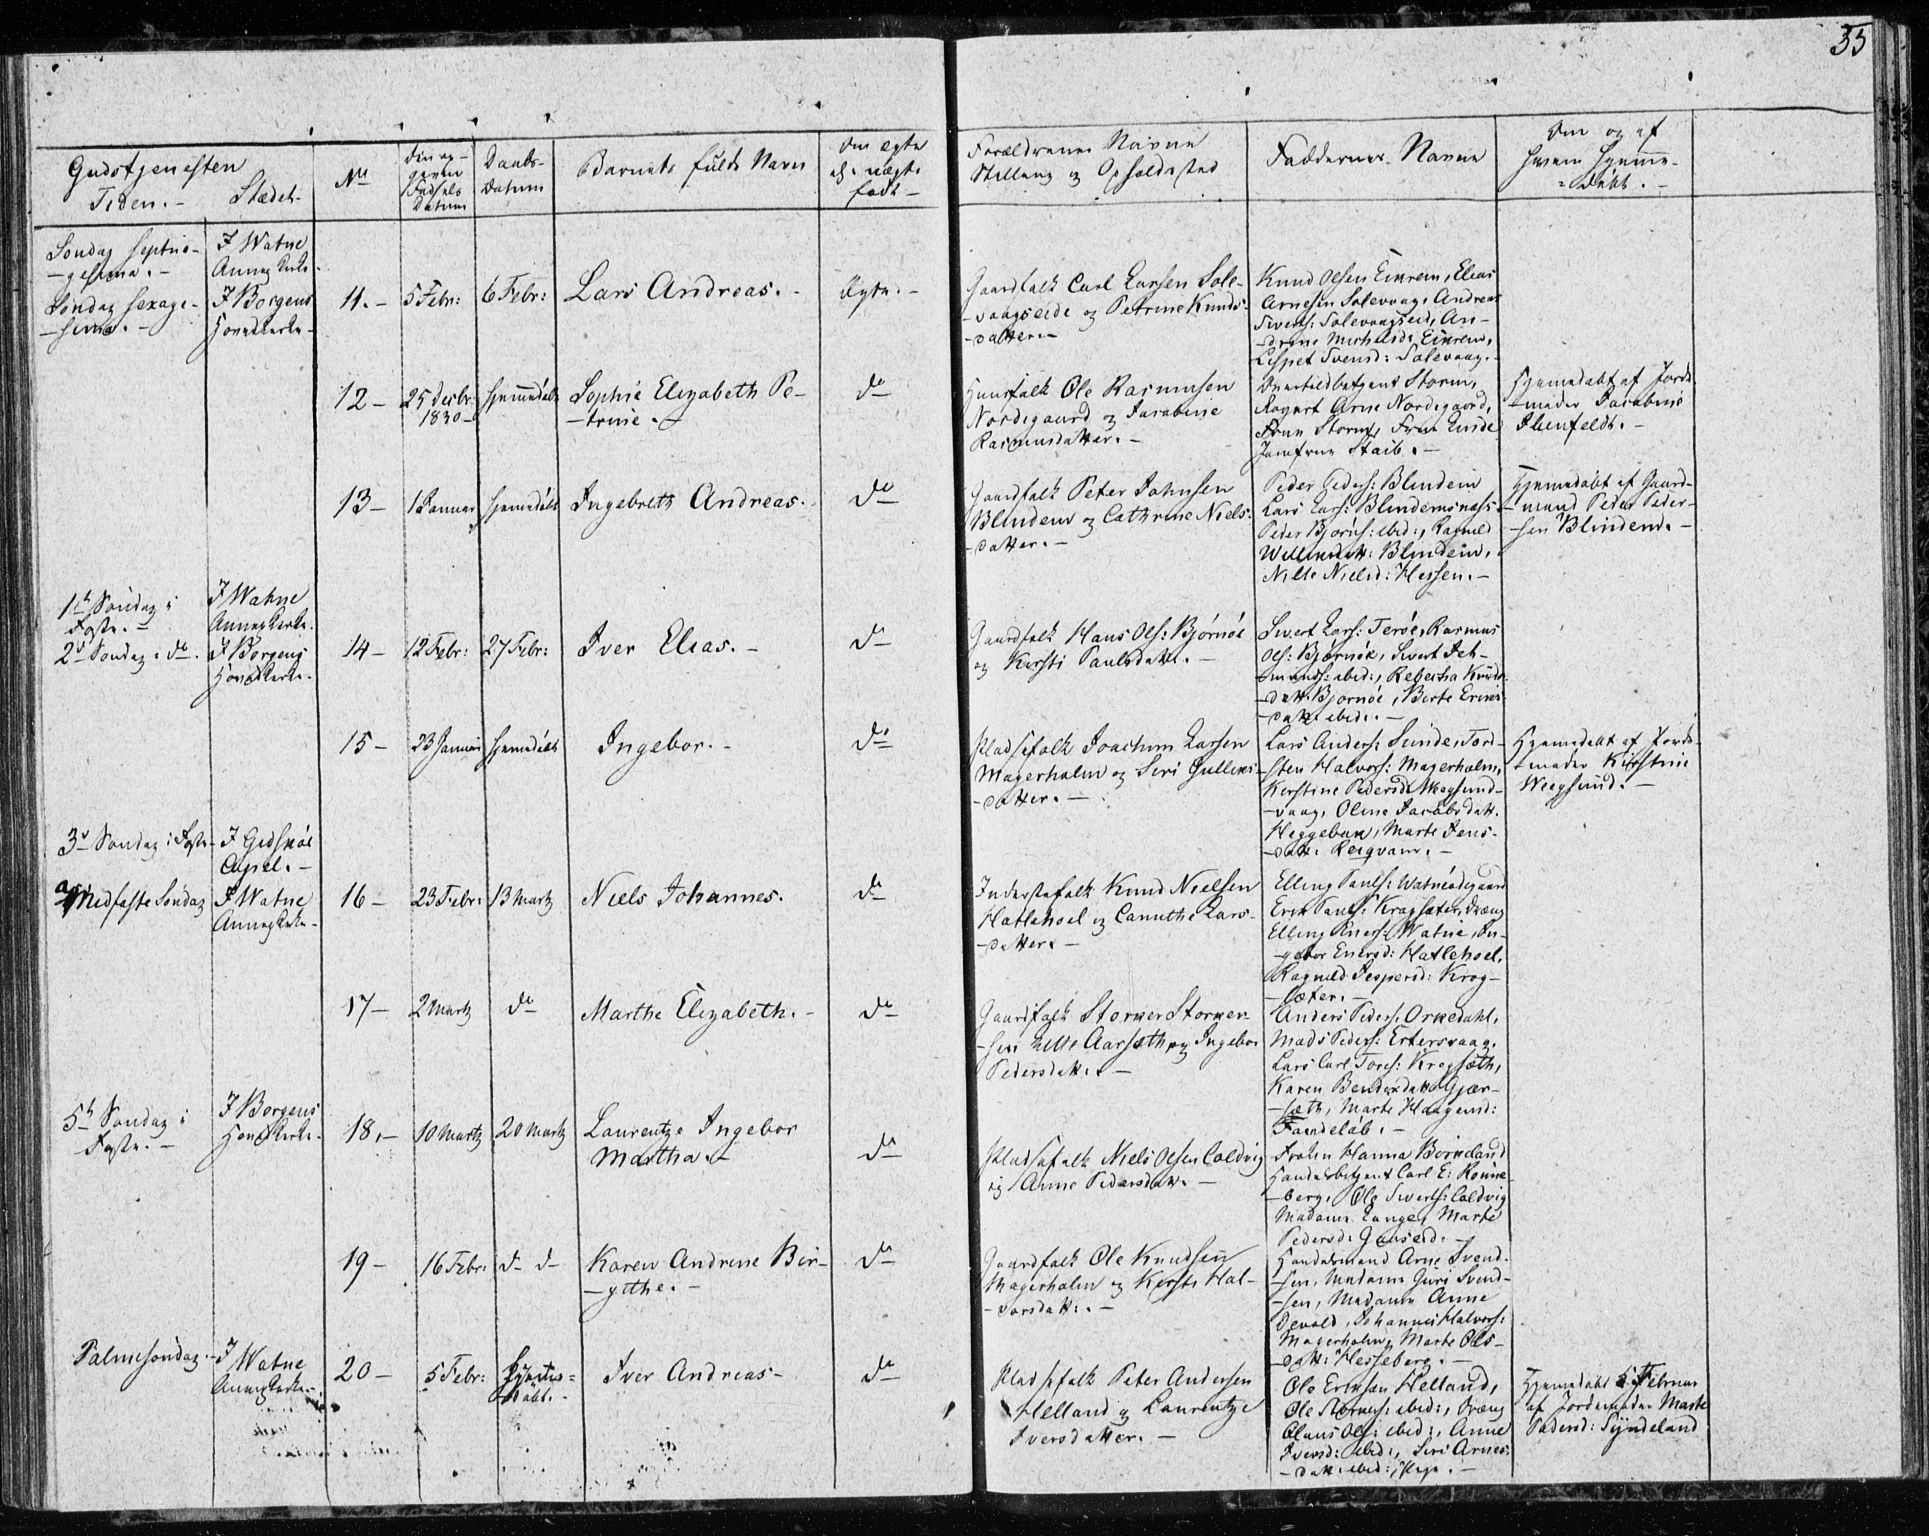 35
Gudstjenesten
Tiden. - Stædet.
No
Den op-
given
Fødsels
Datum
Daabs-
Datum
Barnets fulde Navn
Om ægte
el. uægte
født -
Forældrenes Navne
Stilling og Opholdssted
Faddernes Navne
Om og af
hvem hjemme-
døbt. -
Søndag Septua-
-gesima. -
I Watne
Annex Kirke.
Søndag Sexage-
-sima. -
I Borgens
Hovedkirke -
11. - 5 Febr: 6 Febr: Lars Andreas. - Ægte. -
Gaardfolk Carl Larsen Sole-
-vaagseide og Petrine Knuds-
-datter. -
Knud Olsen Eikrem, Elias
Arnesen Solevaag, Andreas
Siverts: Solevaagseid, An-
-drine Michelsd: Eikrem,
Lispet Svensd: Solevaag. -
12 - 25 Decbr: 1830 - hjemmedøbt Sophie Elizabeth Pe-
-trine. -
do
Huusfolk Ole Rasmusen
Nordegaard og Jacobine
Rasmusdatter. -
Storm,
Arne Nordegaard,
Frue Storm, Frue
Jomfrue Staib. -
Hjemmedøbt af Jorde-
-moder Jacobine
Ibenfeldt. -
13 - 1 Januar hjemmedøbt Ingebreth Andreas. - do
Gaardfolk Peter Johnsen
Blindem og Cathrine Niels-
-datter. -
Peder Peders: Blindem
Lars Lars: Blindemsnæss.
Peder Bjørns: ibid:, Ragnild
Willumsdatt: Blindem,
Nille Nielsd: Hessen. -
Hjemmedøbt af Gaard-
-mand Peder Peder-
-sen Blindem. -
1ste Søndag i
Faste. -
I Watne
Annex Kirke.
2den Søndag i do.
I Borgens
Hovedkirke -
14 - 12 Febr: 27 Febr: Iver Elias. - do
Gaardfolk Hans Ols: Bjørnøe
og Kirsti Paulsdatt. -
Sivert Lars: Terøe, Rasmus
Ols: Bjørnøe, Sivert
ibid:, Rebecha Knuds-
-datt. Bjørnøe, Berte Erics-
-datt. ibid:. -
15 - 23 Januar hjemmedøbt Ingebor. - do
Pladsefolk Joachim Larsen
Magerholm og Siri Gullics-
-datter. -
Lars Anders: Sunde, Tor-
-sten Halvors: Magerholm,
Kirstine Pedersd:
-vaag, Oline Jacobsdatt.
Heggebak, Marte Jens-
-datt. -
Hjemmedøbt af Jorde-
-moder Kirstine
Weegsund. -
3de Søndag i Faste
I Godsøe
Capel. -
Midfaste Søndag
I Watne
Annex Kirke -
16 - 23 Febr: 13 Martz Niels Johannes. do
Inderstefolk Knud Nielsen
Hatlehoel og Canuthe Lars-
-datter. -
Elling Pauls: Watneødegaard
Erik Pauls: Kragsæter, Dreng
Elling Watne, In-
-gebor Hatlehoel,
Ragnild Jespersd: Krog-
-sæter. -
17 - 2 Martz do Marthe Elizabeth. - do
Gaardfolk Storker Storker-
-sen Aarsæth og Ingebor
Pedersdatt. -
Anders Peders: Orkedahl,
Mads Peders: Ertersvaag.
Lars Carl Tores: Krogsæth,
Karen
-sæth, Marte
5te Søndag i
Faste. -
I Borgens
Hovedkirke.
18. - 10 Martz 20 Martz Laurentze Ingebor
Martha. - do
Pladsefolk Niels Olsen Coldvig
og Anne Pedersdatt. -
Frøken Hanna Birkeland
Handelsbetjent Carl E: Rønne-
-berg, Ole Siverts: Coldvig
Madame Lange, Marte
Pedersd: -
19 - 16 Febr: do do Karen Andrine Bir-
-gitthe. - do
Gaardfolk Ole Knudsen
Magerholm og Kirsti Hal-
-vorsdatt. -
Handelsmand Arne Svend-
-sen, Madame Guri Svend-
-sen, Madame Anne
Devold, Johannes Halvors:
Magerholm, Marte Ols-
-datt. Hesseberg. -
Palmesøndag. -
I Watne
Annex Kirke. -
20 - 5 Febr: hjemme-
-døbt. - Iver Andreas - do
Pladsefolk Peter Andersen
Helland og Laurentze
Iversdatter. -
Ole Ericsen Helland,
Ole ibid:, Dreng
Claus Ols: ibid:, Anne
Iversd: ibid:, Siri Arnes-
-datt. ibid:, Pige. -
Hjemmedøbt 5 Februar
af Jordemoder Marte
Pedersd: Syndeland